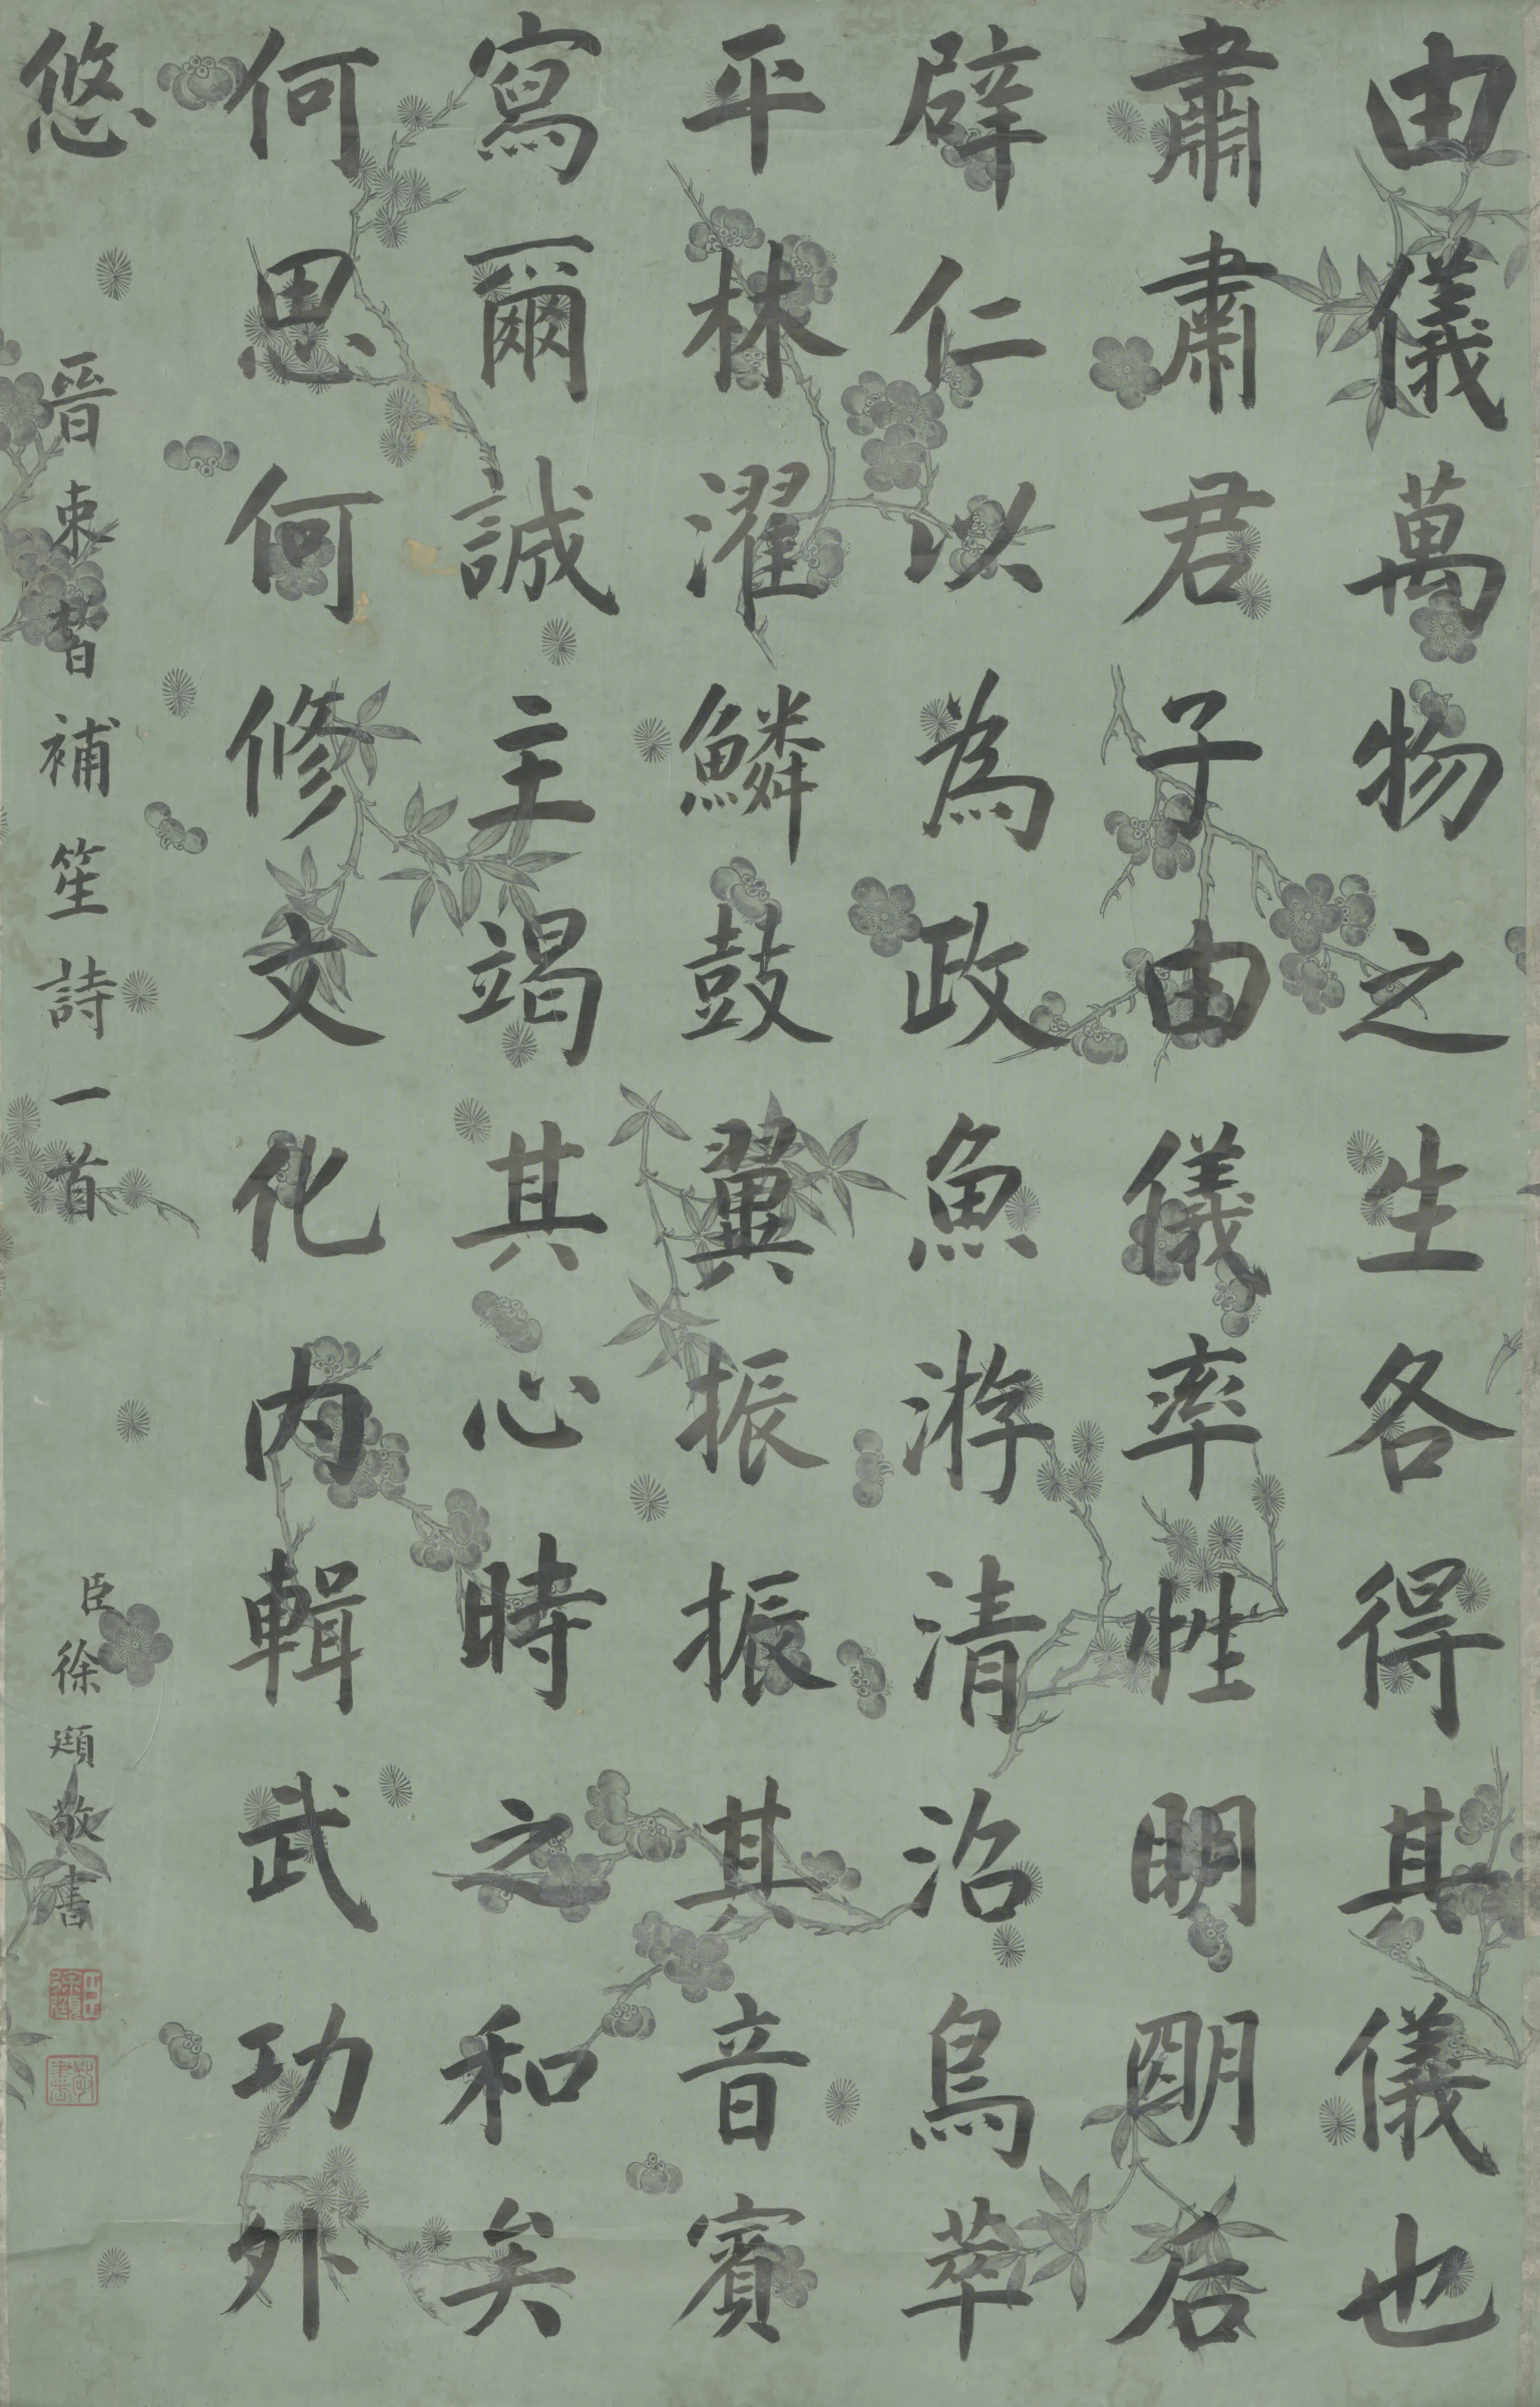 由儀萬物之生各得其儀也
肅肅君子由儀率性明明后
辟仁以為政魚游清沼鳥萃
平林濯鱗鼓翼振振其音賓
寫爾誠主竭其心時之和矣
何思何修文化內輯武功外
悠
晉束晳補笙詩一首
臣徐頲敬書